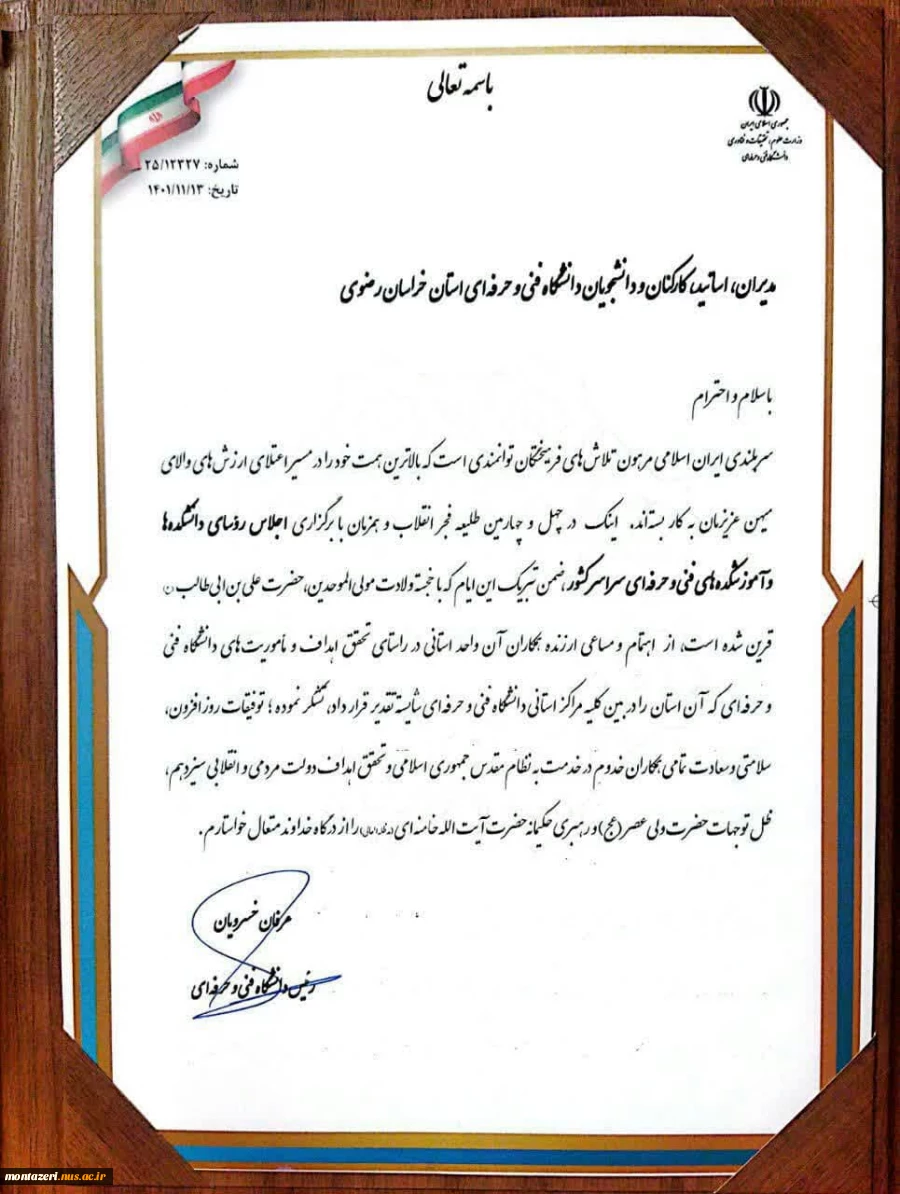 باسمه تعالی
جمهوری اسلامی ایران
وزارت علوم، تحقیقات و فناوری
دانشگاه فنی و حرفه‌ای
شماره: ۲۵/۱۲۳۲۷
تاریخ: ۱۴۰۱/۱۱/۱۳
مدیران، اساتید، کارکنان و دانشجویان دانشگاه فنی و حرفه‌ای استان خراسان رضوی
با سلام و احترام
سربلندی ایران اسلامی مرهون تلاش‌های فرهیختگان توانمندی است که بالاترین همت خود را در مسیر اعتلای ارزش‌های والای
میهن عزیزمان به کار بسته‌اند. اینک در چهل و چهارمین طلیعه فجر انقلاب و همزمان با برگزاری اجلاس رؤسای دانشکده‌ها
و آموزشکده‌های فنی و حرفه‌ای سراسر کشور، ضمن تبریک این ایام که با خجسته ولادت مولی الموحدین، حضرت علی بن ابی طالب (ع)
قرین شده است، از اهتمام و مساعی ارزنده همکاران آن واحد استانی در راستای تحقق اهداف و مأموریت‌های دانشگاه فنی
و حرفه‌ای که آن استان را در بین کلیه مراکز استانی دانشگاه فنی و حرفه‌ای شایسته تقدیر قرار داد، تشکر نموده؛ توفیقات روزافزون،
سلامتی و سعادت تمامی همکاران خدوم در خدمت به نظام مقدس جمهوری اسلامی و تحقق اهداف دولت مردمی و انقلابی سیزدهم،
ظل توجهات حضرت ولی عصر (عج) و رهبری حکیمانه حضرت آیت الله خامنه‌ای (مدظله العالی) را از درگاه خداوند متعال خواستارم.
عرفان خسرویان
رئیس دانشگاه فنی و حرفه‌ای
montazeri.nus.ac.ir